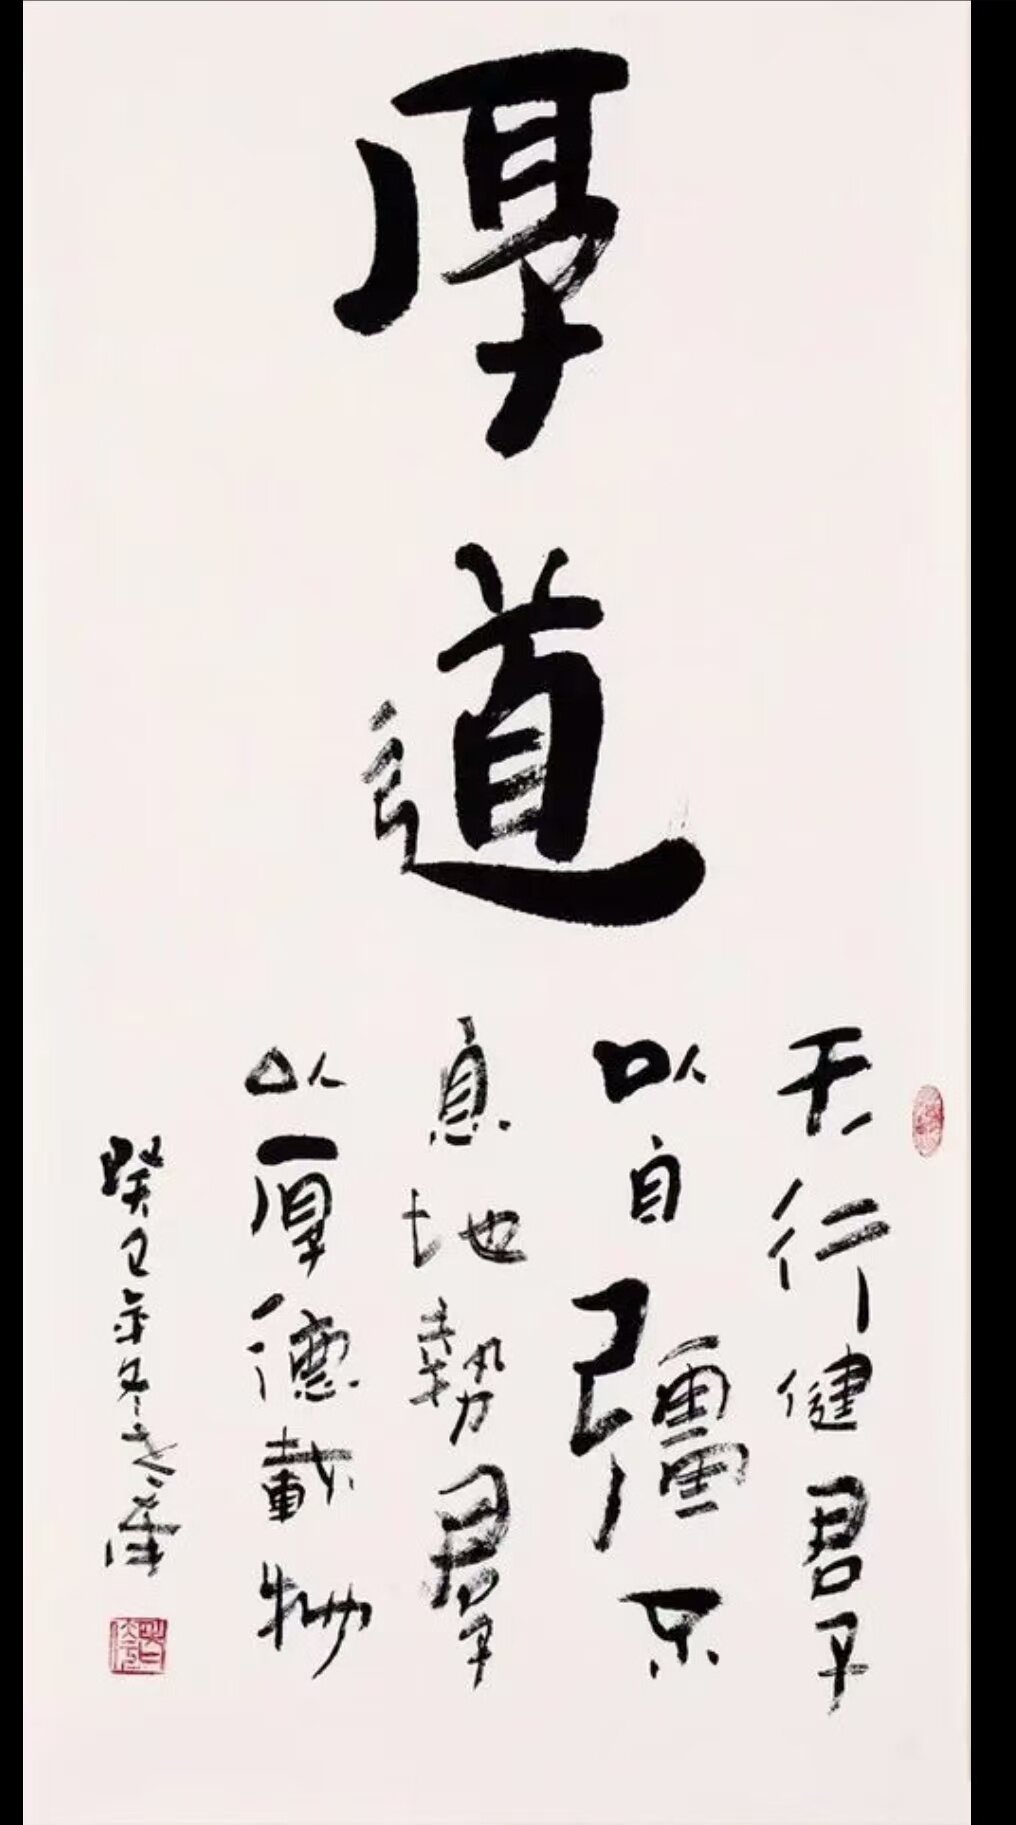 厚道
天行健君子
以自彊不
息地勢君子
以厚德載物
癸巳年冬